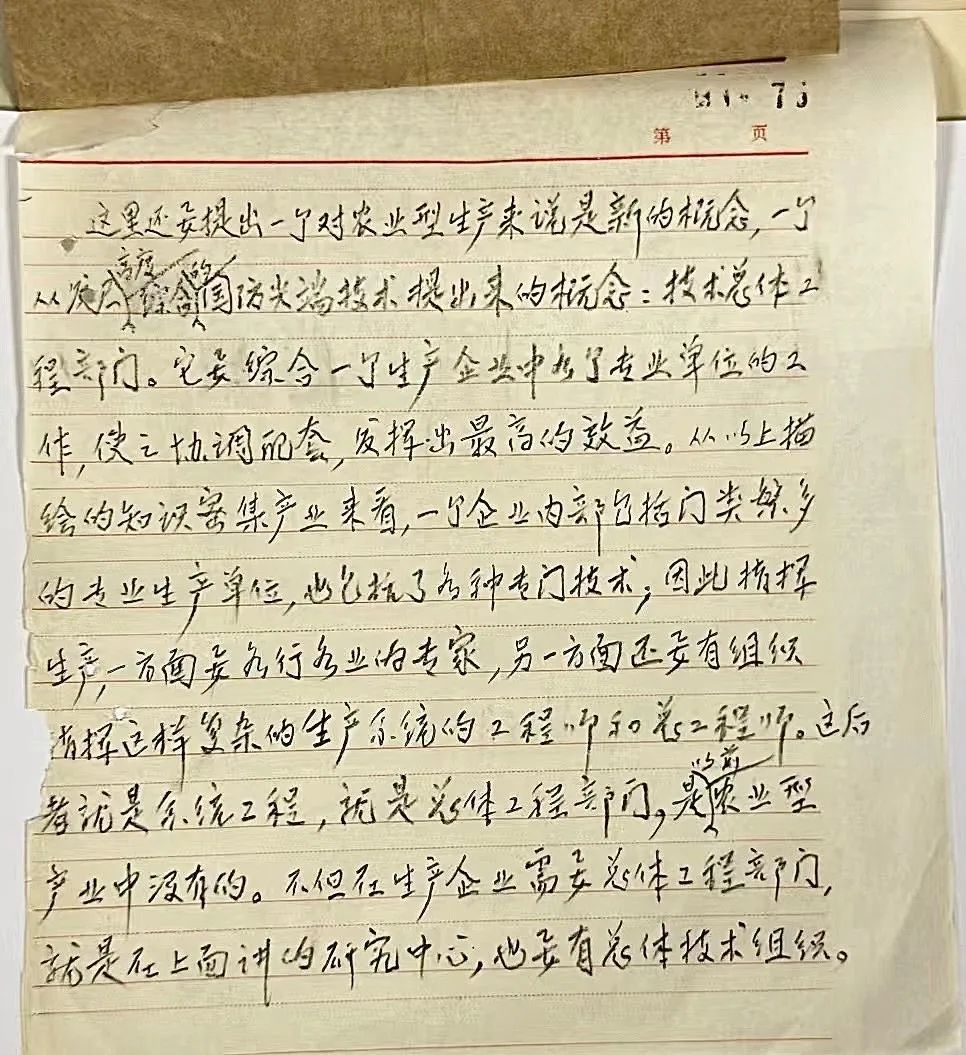 73
第 页
这里还要提出一个对农业型生产来说是新的概念，一个
从发展高度综合的国防尖端技术提出来的概念：技术总体工
程部门。它要综合一个生产企业中各个专业单位的工
作，使之协调配套，发挥出最高的效益。从以上描
绘的知识密集产业来看，一个企业内部包括门类繁多
的专业生产单位，也包括了各种专门技术；因此指挥
生产，一方面要各行各业的专家，另一方面还要有组织
指挥这样复杂的生产系统的工程师和总工程师。这后
者就是系统工程，就是总体工程部门，是以前农业型
产业中没有的。不但在生产企业需要总体工程部门，
就是在上面讲的研究中心，也要有总体技术组织。